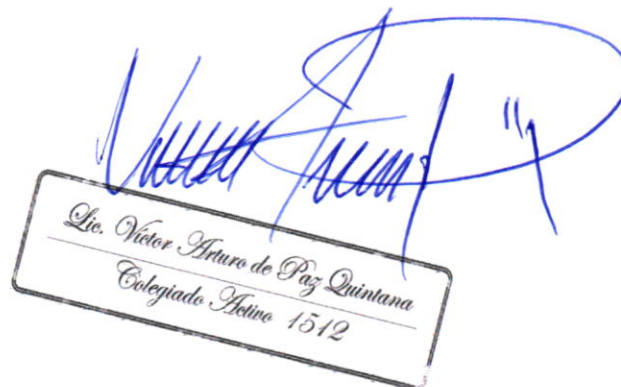 Lic. Víctor Arturo de Paz Quintana
Colegiado Activo 1512